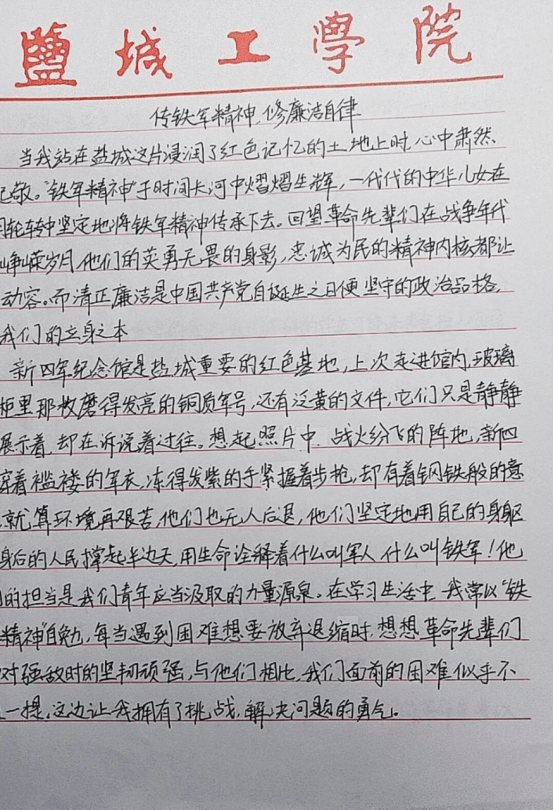 盐城工学院
传铁军精神,修廉洁自律
当我站在盐城这片浸润了红色记忆的土地上时,心中肃然
起敬。“铁军精神”于时间长河中熠熠生辉,一代代的中华儿女在
轮转中坚定地将铁军精神传承下去。回望革命先辈们在战争年代
峥嵘岁月,他们的英勇无畏的身影,忠诚为民的精神内核都让
动容。而清正廉洁是中国共产党自诞生之日便坚守的政治品格,
我们的立身之本
新四军纪念馆是盐城重要的红色基地,上次走进馆内,玻璃
柜里那枚磨得发亮的铜质军号,还有泛黄的文件,它们只是静静
展示着,却在诉说着过往。想起照片中,战火纷飞的阵地,新四
穿着褴褛的军衣,冻得发紫的手紧握着步枪,却有着钢铁般的意
就算环境再艰苦,他们也无人后退,他们坚定地用自己的身躯
身后的人民撑起半边天,用生命诠释着什么叫军人,什么叫铁军!他
的担当是我们青年应当汲取的力量源泉。在学习生活中,我常以“铁
精神”自勉,每当遇到困难想要放弃退缩时,想想革命先辈们
对强敌时的坚韧顽强,与他们相比,我们面前的困难似乎不
一提,这边让我拥有了挑战,解决问题的勇气。